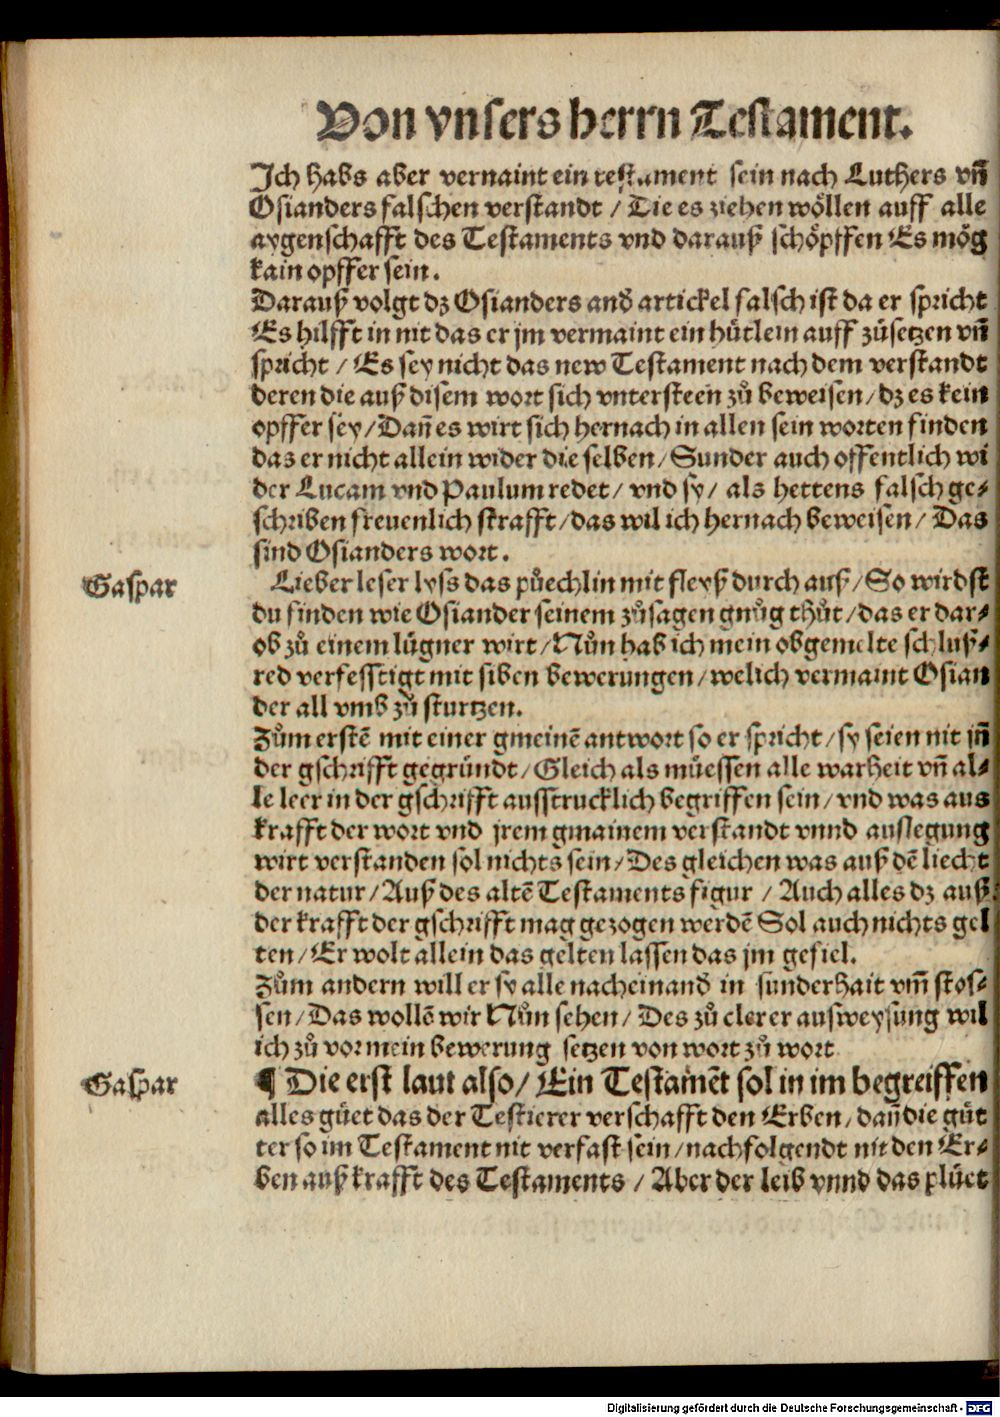 Von vnsers herrn Testament.
Ich habs aber vernaint ein testament sein nach Luthers vn̄
Osianders falschen verstandt / Die es ziehen wöllen auff alle
aygenschafft des Testaments vnd darauß schöpffen Es mög
kain opffer sein.
Darauß volgt dz Osianders and̕ artickel falsch ist da er spricht
Es hilfft in nit das er jm vermaint ein hůtlein auff zůsetzen vn̄
spricht / Es sey nicht das new Testament nach dem verstandt
deren die auß disem wort sich vntersteen zů beweisen / dz es kein
opffer sey / Dan̄ es wirt sich hernach in allen sein worten finden
das er nicht allein wider die selben / Sunder auch offentlich wi
der Lucam vnd Paulum redet / vnd sy / als hettens falsch ge⸗
schriben freuenlich strafft / das wil ich hernach beweisen / Das
sind Osianders wort.
Gaspar
Lieber leser lyss das půechlin mit fleyß durch auß / So wirdst
du finden wie Osiander seinem zůsagen gnůg thůt / das er dar⸗
ob zů einem lügner wirt / Nůn hab ich mein obgemelte schluß⸗
red verfesstigt mit siben bewerungen / welich vermaint Osian
der all vmb zů sturtzen.
Zům erstē mit einer gmeinē antwort so er spricht / sy seien nit jn̄
der gschrifft gegründt / Gleich als müessen alle warheit vn̄ al⸗
le leer in der gschrifft ausstrucklich begriffen sein / vnd was aus
krafft der wort vnd jrem gmainem verstandt vnnd auslegung
wirt verstanden sol nichts sein / Des gleichen was auß dē liecht
der natur / Auß des altē Testaments figur / Auch alles dz auß
der krafft der gschrifft mag gezogen werdē Sol auch nichts gel
ten / Er wolt allein das gelten lassen das jm gefiel.
Zům andern will er sy alle nacheinand̕ in sunderhait vm̄ stos⸗
sen / Das wollē wir Nůn sehen / Des zů clerer ausweysung wil
ich zů vor mein bewerung setzen von wort zů wort
Gaspar
¶ Die erst laut also / Ein Testamēt sol in im begreiffen
alles güet das der Testierer verschafft den Erben / dan̄ die güt
ter so im Testament nit verfast sein / nachfolgendt nit den Er⸗
ben auß krafft des Testaments / Aber der leib vnnd das plüet
Digitalisierung gefördert durch die Deutsche Forschungsgemeinschaft - DFG